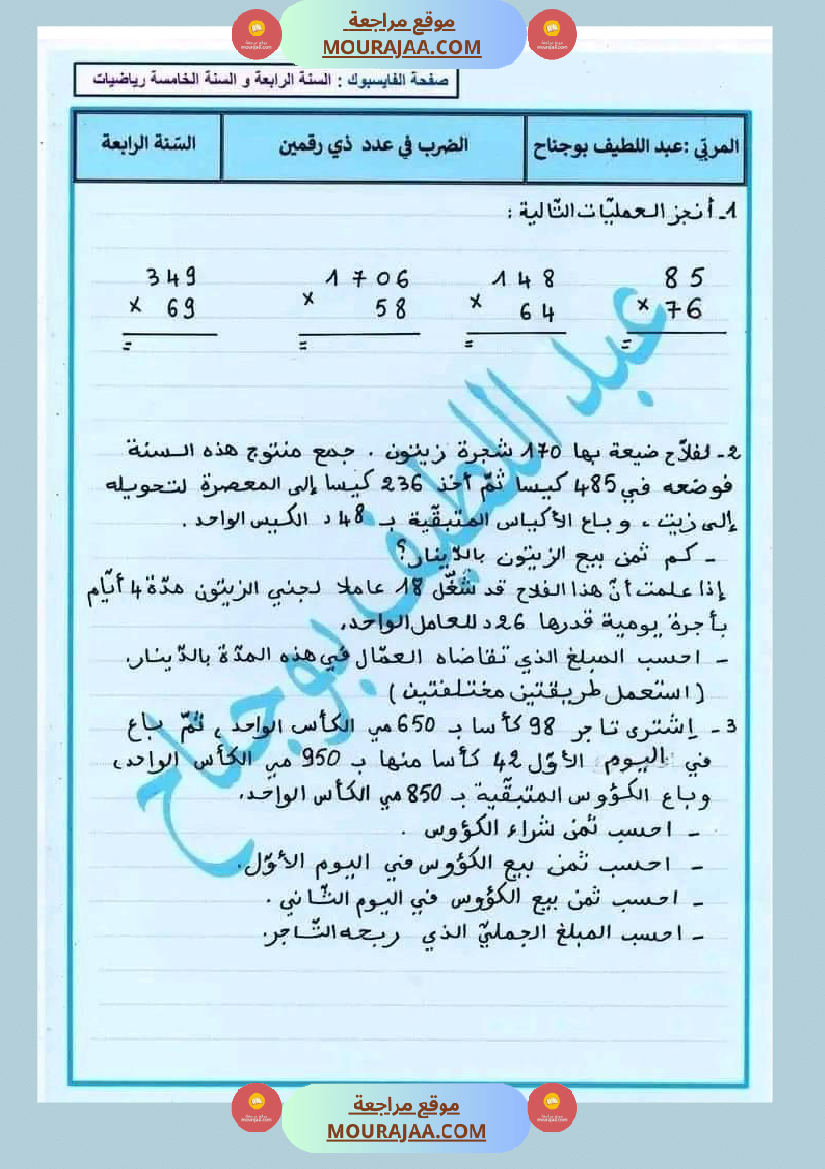 موقع مراجعة
MOURAJAA.COM
صفحة الفايسبوك : السنة الرابعة و السنة الخامسة رياضيات
المربّي :عبد اللطيف بوجناح
الضرب في عدد ذي رقمين
السّنة الرابعة
1ـ أنجز العمليّات التّالية :
85 148 1706 349
× 76 × 64 × 58 × 69
= = = =
2ـ لفلاّح ضيعة بها 170 شجرة زيتون . جمع منتوج هذه السنة
فوضعه في 485 كيسا ثمّ أخذ 236 كيسا إلى المعصرة لتحويله
إلى زيت ، وباع الأكياس المتبقّية بـ 48 د الكيس الواحد .
ـ كم ثمن بيع الزيتون بالدّينار؟
إذا علمت أنّ هذا الفلاح قد شغّل 18 عاملا لجني الزيتون مدّة 4 أيّام
بأجرة يومية قدرها 26 د للعامل الواحد.
ـ احسب المبلغ الذي تقاضاه العمّال في هذه المدّة بالدّينار.
( استعمل طريقتين مختلفتين )
3ـ إشترى تاجر 98 كأسا بـ 650 مي الكأس الواحد ، ثمّ باع
في اليوم الأوّل 42 كأسا منها بـ 950 مي الكأس الواحد،
وباع الكؤوس المتبقّية بـ 850 مي الكأس الواحد.
ـ احسب ثمن شراء الكؤوس .
ـ احسب ثمن بيع الكؤوس في اليوم الأوّل.
ـ احسب ثمن بيع الكؤوس في اليوم الثّاني .
ـ احسب المبلغ الجمليّ الذي ربحه التّاجر.
عبد اللطيف بوجناح
موقع مراجعة
MOURAJAA.COM